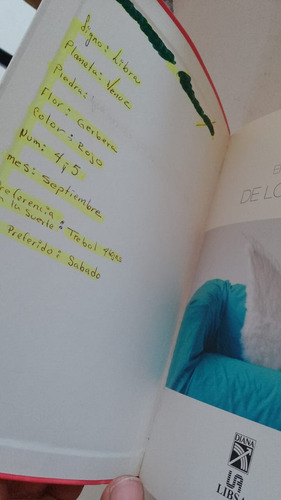 Signo: Libra
Planeta: Venus
Piedra:
Flor: Gerbera
Color: Rojo
Num: 4 y 5
mes: Septiembre
referencia
a la suerte: Trebol 4 hojas
Preferido: Sabado
DE LO
DIANA
LIBS